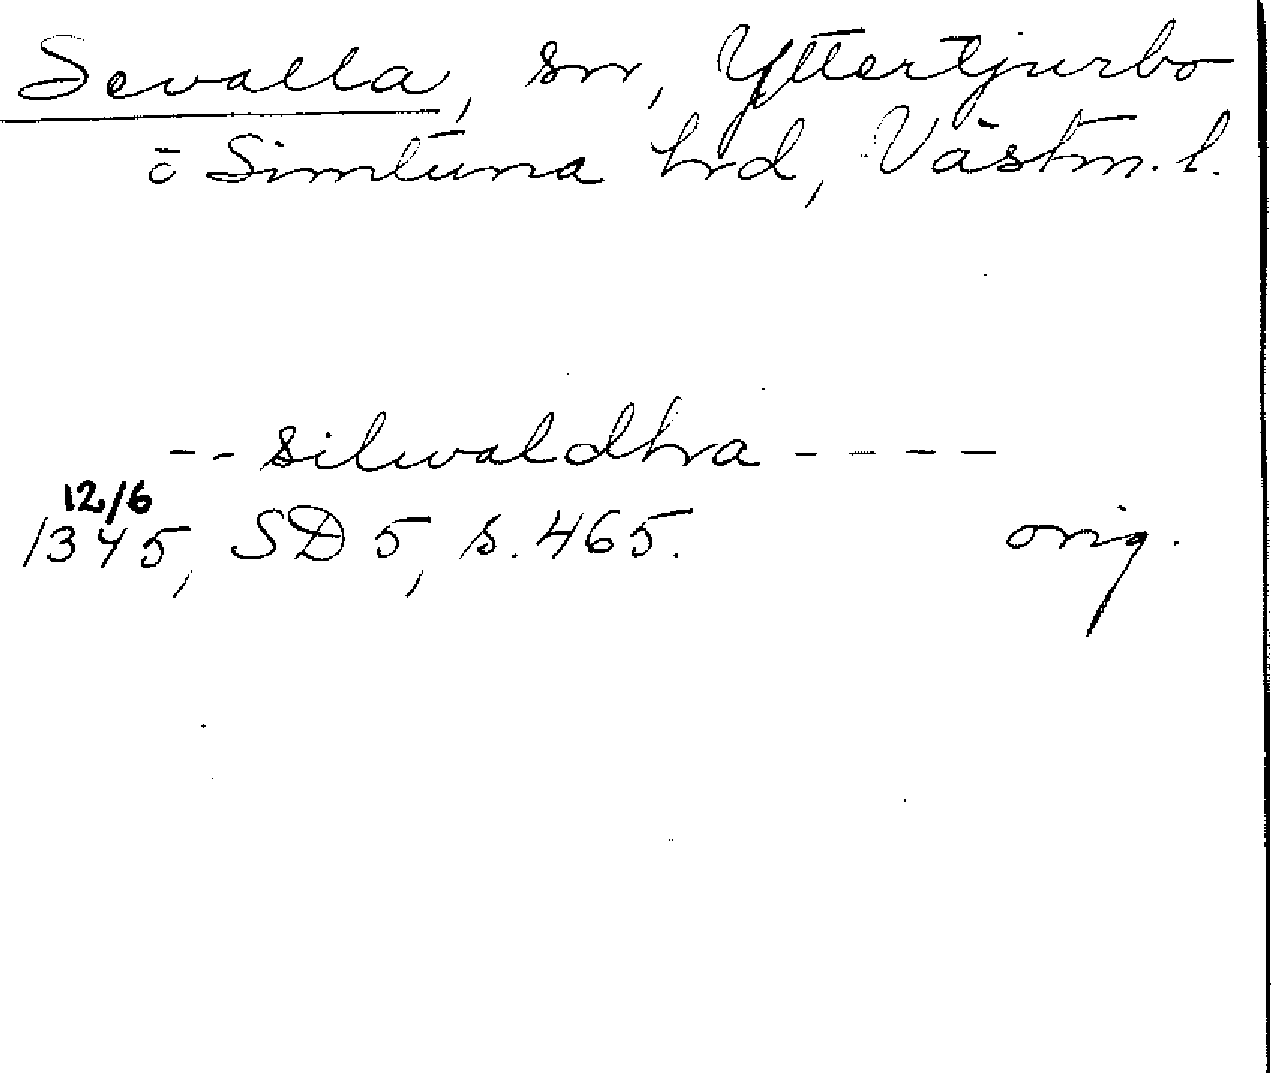 Sevalla, sn, Yttertjurbo
o Simtuna hrd, Västm. l.
-- silwaldhra -----
12/6
1345, SD 5, s. 465. orig.